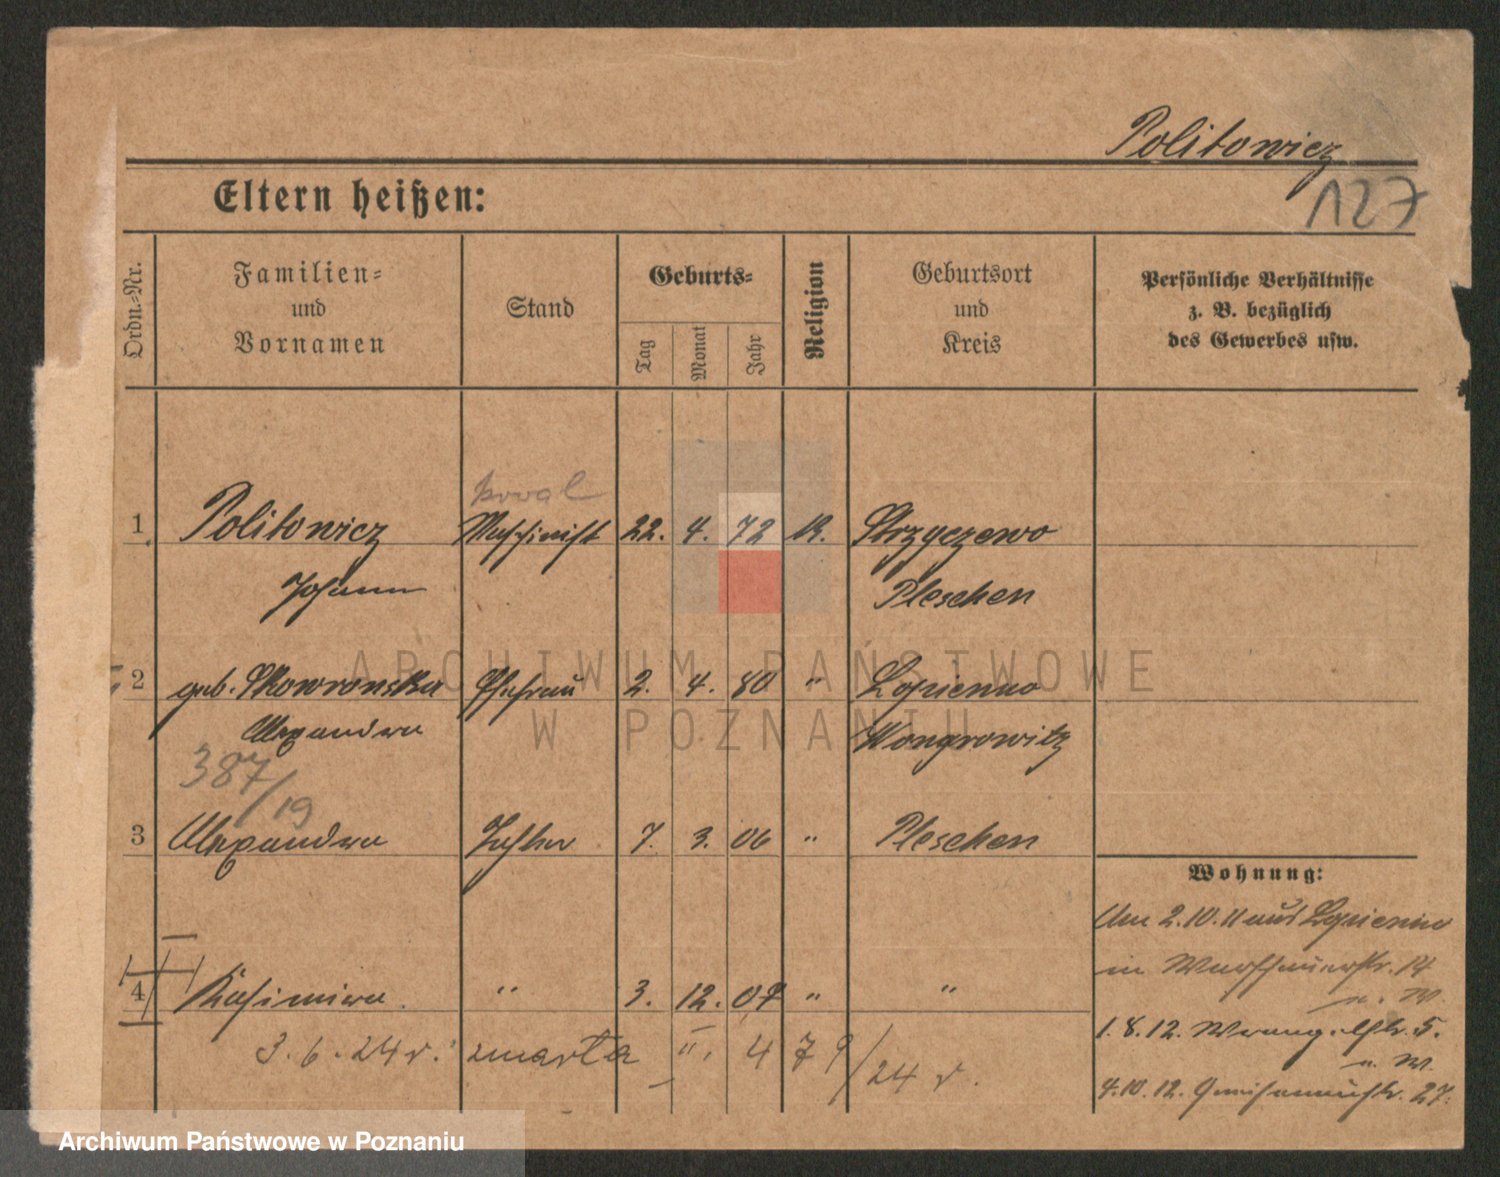 Politowicz
127
Eltern heißen:
Ordn.=Nr.
Familien=
und
Vornamen
Stand
Geburts=
Tag
Monat
Jahr
Religion
Geburtsort
und
Kreis
Persönliche Verhältnisse
z. B. bezüglich
des Gewerbes usw.
kowal
1 Politowicz Maschinist 22. 4. 72 K. Strzyczewo
Johann Pleschen
2 geb. Skowronska Ehefrau 2. 4. 80 " Lopienno
Alexandra Wongrowitz
387/19
3 Alexandra Tochter 7. 3. 06 " Pleschen
4 Kasimira " 3. 12. 07 " "
3. 6. 24 r. zmarła II. 479/24 r.
Wohnung:
Am 2.10.11 aus Lopienno
in Warschauerstr. 14
n. W.
1.8.12. Str. 5.
n. W.
4.10.12. Gneisenaustr. 27.
ARCHIWUM PAŃSTWOWE
W POZNANIU
Archiwum Państwowe w Poznaniu